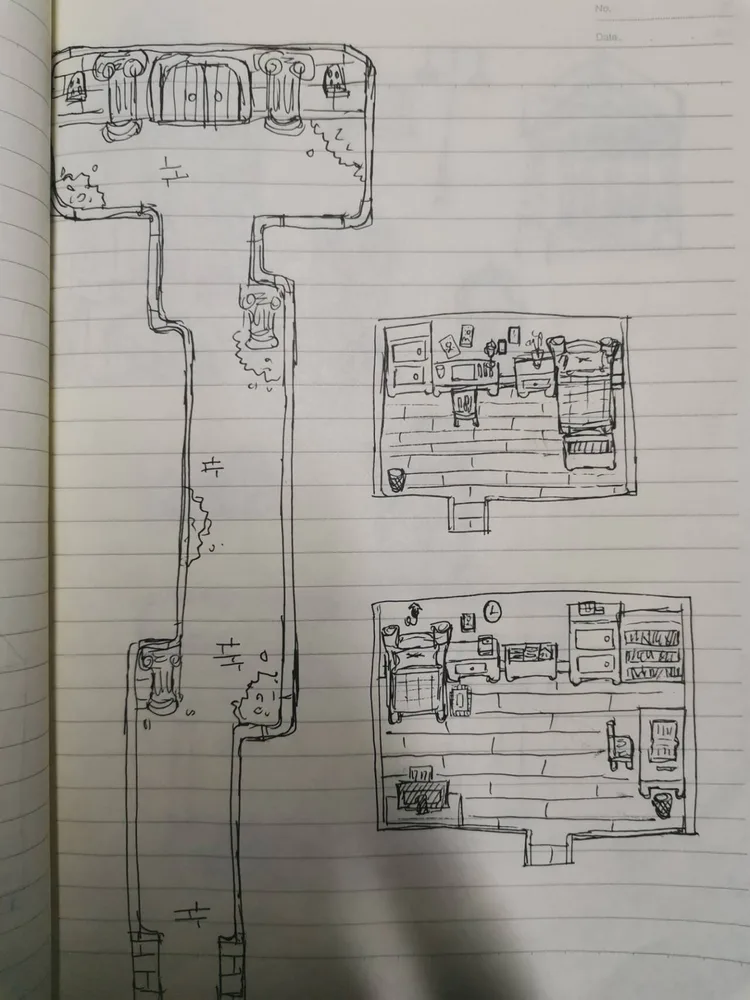 No.
Date.